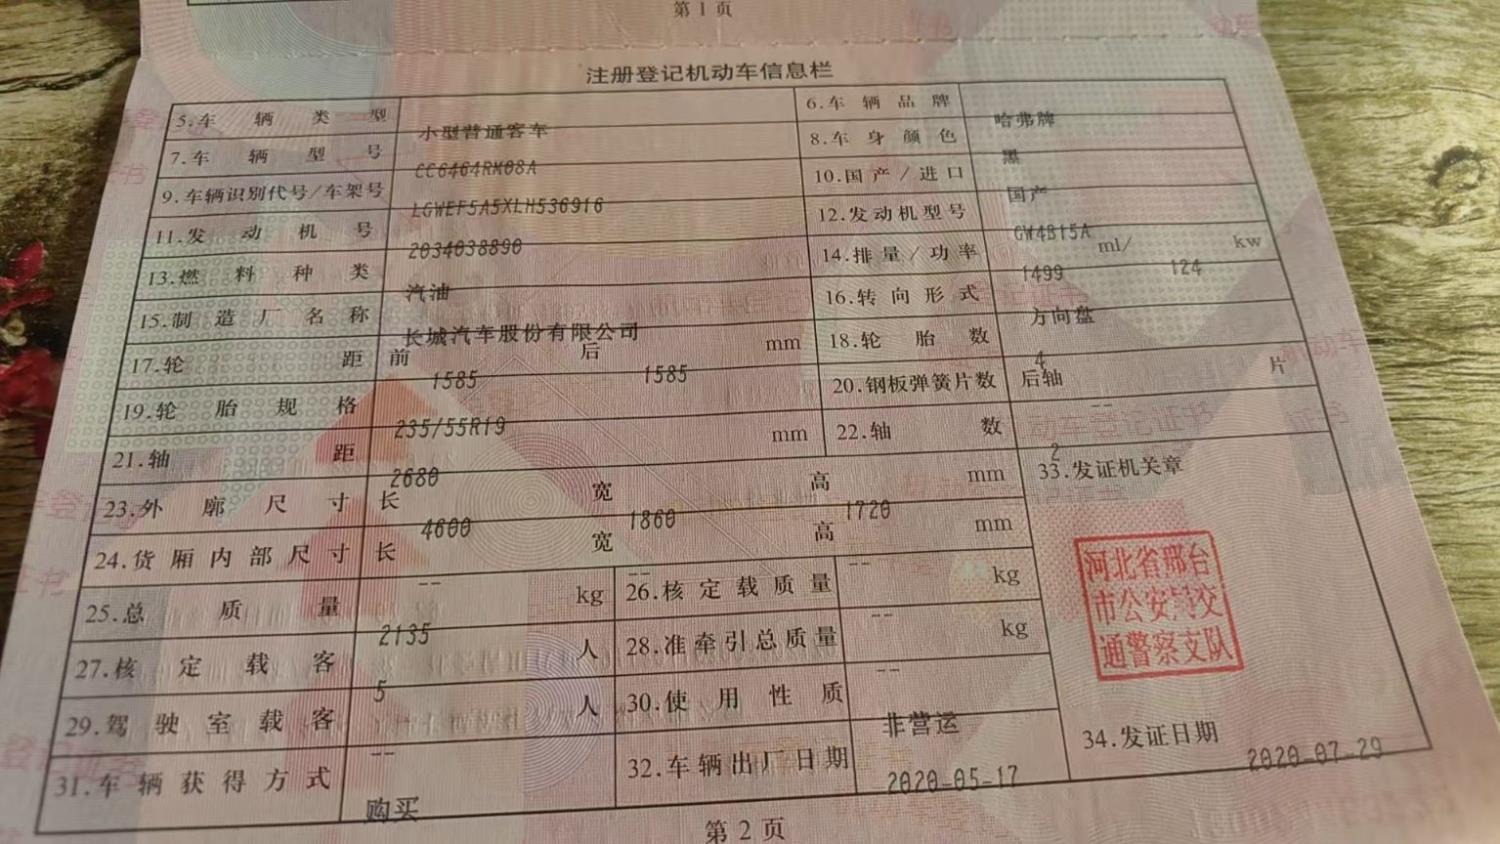 第1页
注册登记机动车信息栏
5.车辆类型 小型普通客车 6.车辆品牌 哈弗牌
7.车辆型号 CC6464RM08A 8.车身颜色 黑
9.车辆识别代号/车架号 LGWEF5A5XLH536916 10.国产/进口 国产
11.发动机号 2034038890 12.发动机型号 GW4B15A
13.燃料种类 汽油 14.排量/功率 1499 ml/ 124 kw
15.制造厂名称 长城汽车股份有限公司 16.转向形式 方向盘
17.轮距 前 1585 后 1585 mm 18.轮胎数 4
19.轮胎规格 235/55R19 20.钢板弹簧片数 后轴 -- 片
21.轴距 2680 mm 22.轴数 2
23.外廓尺寸 长 4600 宽 1860 高 1720 mm 33.发证机关章
24.货厢内部尺寸 长 -- 宽 -- 高 -- mm
河北省邢台
市公安局交
通警察支队
25.总质量 2135 kg 26.核定载质量 -- kg
27.核定载客 5 人 28.准牵引总质量 -- kg
29.驾驶室载客 -- 人 30.使用性质 非营运
31.车辆获得方式 购买 32.车辆出厂日期 2020-05-17 34.发证日期 2020-07-29
第2页